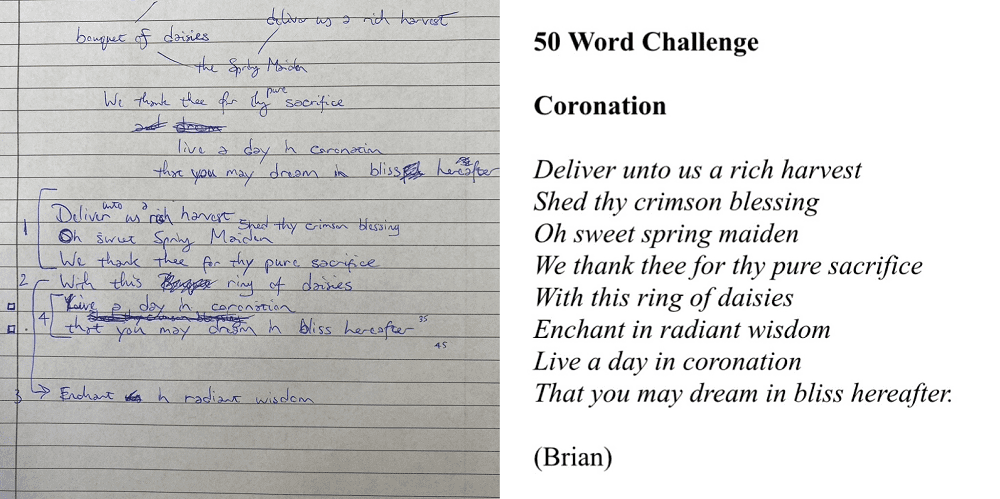 deliver us a rich harvest
bouquet of daisies
the Spring Maiden
We thank thee for thy pure sacrifice
and dream
live a day in coronation
that you may dream in bliss hereafter
1
Deliver unto us a rich harvest
Shed thy crimson blessing
Oh sweet Spring Maiden
We thank thee for thy pure sacrifice
2 With this ring of daisies
4 Live a day in coronation
Shed thy crimson blessing
that you may dream in bliss hereafter 35
45
3 Enchant in radiant wisdom
50 Word Challenge
Coronation
Deliver unto us a rich harvest
Shed thy crimson blessing
Oh sweet spring maiden
We thank thee for thy pure sacrifice
With this ring of daisies
Enchant in radiant wisdom
Live a day in coronation
That you may dream in bliss hereafter.
(Brian)